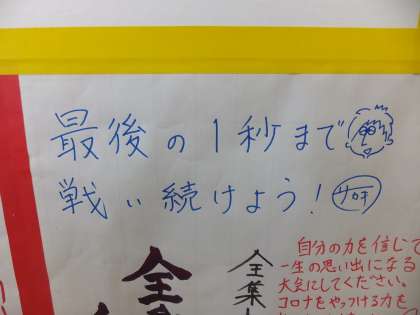 最後の1秒まで
戦い続けよう!
自分の力を信じて
一生の思い出になる
大会にしてください。
コロナをやっつける力を
全集
全